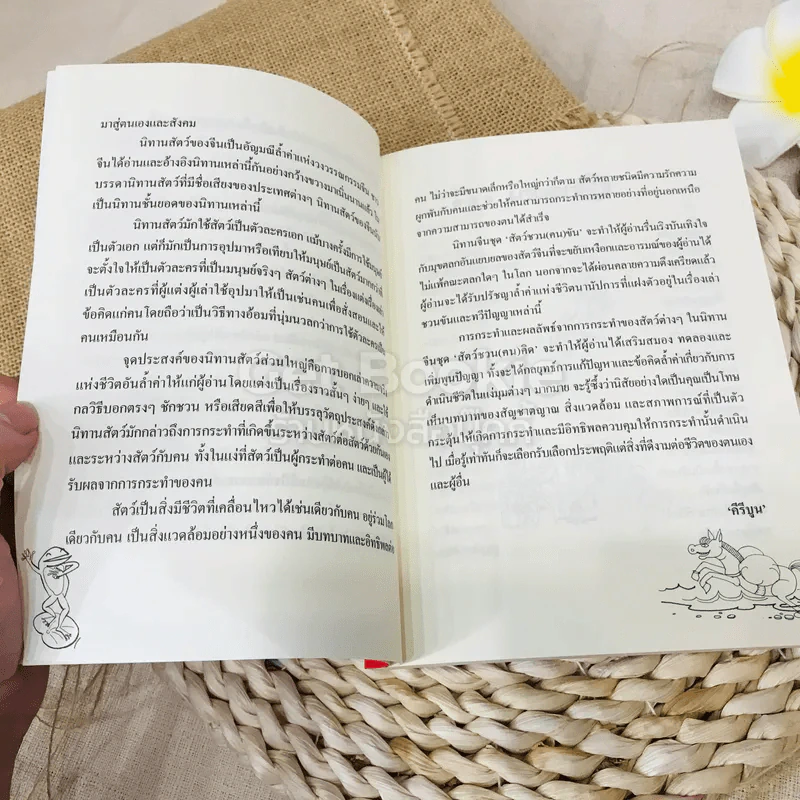 มาสู่ตนเองและสังคม
นิทานสัตว์ของจีนเป็นอัญมณีล้ำค่าแห่งวงวรรณกรรมจีน
จีนได้อ่านและอ้างอิงนิทานเหล่านี้กันอย่างกว้างขวางมาเนิ่นนานแล้ว
บรรดานิทานสัตว์ที่มีชื่อเสียงของประเทศต่างๆ นิทานสัตว์ของจีน
เป็นนิทานชั้นยอดของนิทานเหล่านี้
นิทานสัตว์มักใช้สัตว์เป็นตัวละครเอก แม้บางครั้งมีการใช้มนุษย์
เป็นตัวเอก แต่ก็มักเป็นการอุปมาหรือเทียบให้มนุษย์เป็นสัตว์มากกว่าที่
จะตั้งใจให้เป็นตัวละครที่เป็นมนุษย์จริงๆ สัตว์ต่างๆ ในเรื่องแต่ละเรื่อง
เป็นตัวละครที่ผู้แต่งผู้เล่าใช้อุปมาให้เป็นเช่นคนเพื่อสั่งสอนและให้
ข้อคิดแก่คนโดยถือว่าเป็นวิธีทางอ้อมที่นุ่มนวลกว่าการใช้ตัวละครเป็น
คนเหมือนกัน
จุดประสงค์ของนิทานสัตว์ส่วนใหญ่คือการบอกเล่า
แห่งชีวิตอันล้ำค่าให้แก่ผู้อ่านโดยแต่งเป็นเรื่องราวสั้นๆ ง่ายๆ และใช้
กลวิธีบอกตรงๆ ชักชวน หรือเสียดสีเพื่อให้บรรลุวัตถุประสงค์
นิทานสัตว์มักกล่าวถึงการกระทำที่เกิดขึ้นระหว่างสัตว์ต่อสัตว์ด้วยกันเอง
และระหว่างสัตว์กับคน ทั้งในแง่ที่สัตว์เป็นผู้กระทำต่อคน และเป็นผู้ได้
รับผลจากการกระทำของคน
สัตว์เป็นสิ่งมีชีวิตที่เคลื่อนไหวได้เช่นเดียวกับคน อยู่ร่วมโลก
เดียวกับคน เป็นสิ่งแวดล้อมอย่างหนึ่งของคน มีบทบาทและอิทธิพลต่อ
คน ไม่ว่าจะมีขนาดเล็กหรือใหญ่กว่าก็ตาม สัตว์หลายชนิดมีความรักความ
ผูกพันกับคนและช่วยให้คนสามารถกระทำการหลายอย่างที่อยู่นอกเหนือ
จากความสามารถของตนได้สำเร็จ
นิทานจีนชุด 'สัตว์ชวน(คน)ขัน' จะทำให้ผู้อ่านรื่นเริงบันเทิงใจ
กับมุขตลกอันแยบยลของสัตว์จีนที่จะขยับเหงือกและอารมณ์ของผู้อ่านได้
ไม่แพ้คณะตลกใดๆ ในโลก นอกจากจะได้ผ่อนคลายความตึงเครียดแล้ว
ผู้อ่านจะได้รับปรัชญาล้ำค่าแห่งชีวิตนานัปการที่แฝงตัวอยู่ในเรื่องเล่า
ชวนขันและทวีปัญญาเหล่านี้
การกระทำและผลลัพธ์จากการกระทำของสัตว์ต่างๆ ในนิทาน
จีนชุด 'สัตว์ชวน(คน)คิด' จะทำให้ผู้อ่านได้เสริมสนอง ทดลองและ
เพิ่มพูนปัญญา ทั้งจะได้กลยุทธ์การแก้ปัญหาและข้อคิดล้ำค่าเกี่ยวกับการ
ดำเนินชีวิตในแง่มุมต่างๆ มากมาย จะรู้ซึ้งว่านิสัยอย่างใดเป็นคุณเป็นโทษ
เห็นบทบาทของสัญชาตญาณ สิ่งแวดล้อม และสภาพการณ์ที่เป็นตัว
กระตุ้นให้เกิดการกระทำและมีอิทธิพลควบคุมให้การกระทำนั้นดำเนิน
ไป เมื่อรู้เท่าทันก็จะเลือกรับเลือกประพฤติแต่สิ่งที่ดีงามต่อชีวิตของตนเอง
และผู้อื่น
'คีรีบูน'
Get Bookie